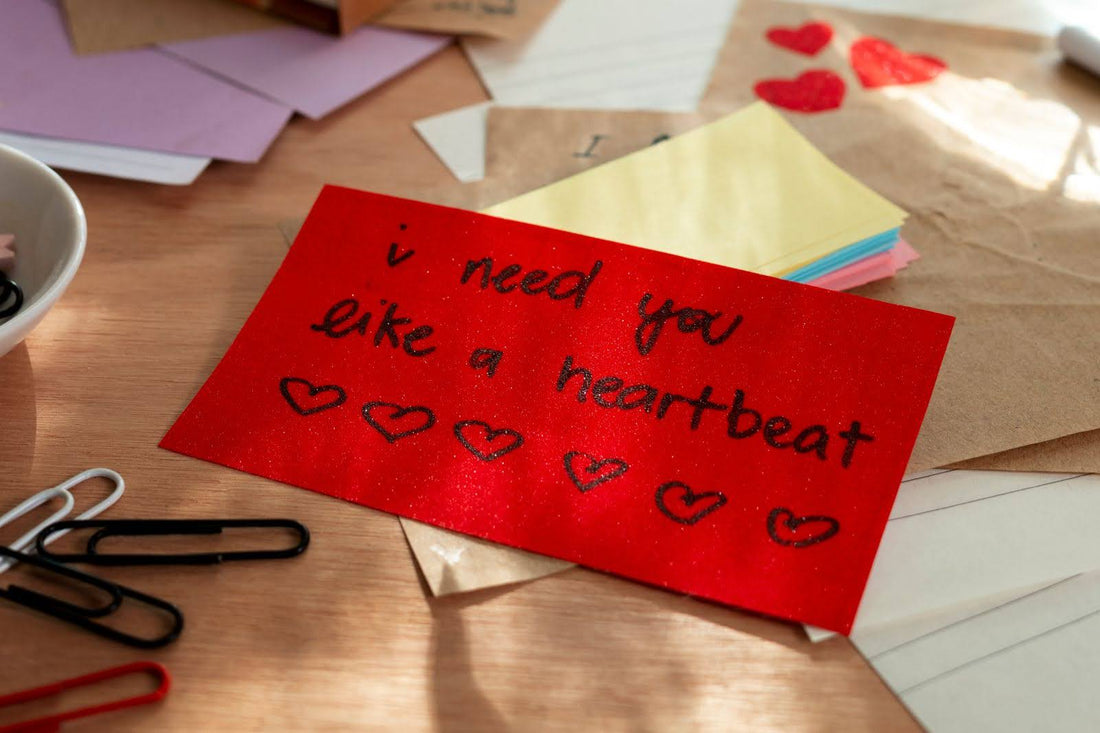 i need you
like a heartbeat
I